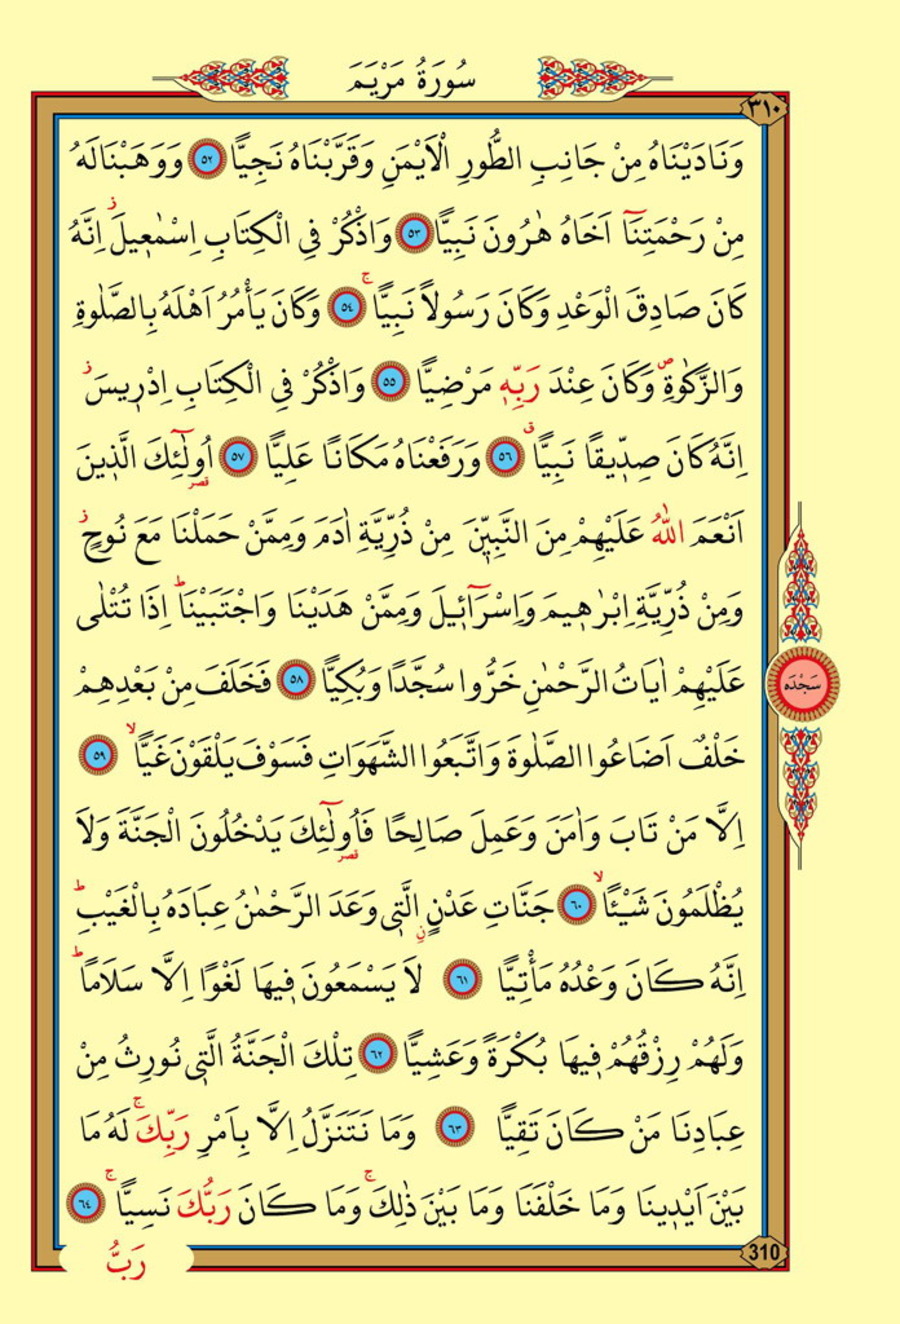 سُورَةُ مَرْيَمَ
٣١٠
وَنَادَيْنَاهُ مِنْ جَانِبِ الطُّورِ الْاَيْمَنِ وَقَرَّبْنَاهُ نَجِيًّا ٥٢ وَوَهَبْنَا لَهُ
مِنْ رَحْمَتِنَٓا اَخَاهُ هٰرُونَ نَبِيًّا ٥٣ وَاذْكُرْ فِي الْكِتَابِ اِسْمٰعٖيلَؗ اِنَّهُ
كَانَ صَادِقَ الْوَعْدِ وَكَانَ رَسُولًا نَبِيًّاۚ ٥٤ وَكَانَ يَأْمُرُ اَهْلَهُ بِالصَّلٰوةِ
وَالزَّكٰوةِࣕ وَكَانَ عِنْدَ رَبِّهٖ مَرْضِيًّا ٥٥ وَاذْكُرْ فِي الْكِتَابِ اِدْرٖيسَؗ
اِنَّهُ كَانَ صِدّٖيقًا نَبِيًّاࣗ ٥٦ وَرَفَعْنَاهُ مَكَانًا عَلِيًّا ٥٧ اُولٰٓئِكَ الَّذٖينَ
قصر
اَنْعَمَ اللّٰهُ عَلَيْهِمْ مِنَ النَّبِيّٖنَ مِنْ ذُرِّيَّةِ اٰدَمَ وَمِمَّنْ حَمَلْنَا مَعَ نُوحٍؗ
وَمِنْ ذُرِّيَّةِ اِبْرٰهٖيمَ وَاِسْرَٓائٖيلَ وَمِمَّنْ هَدَيْنَا وَاجْتَبَيْنَاؕ اِذَا تُتْلٰى
عَلَيْهِمْ اٰيَاتُ الرَّحْمٰنِ خَرُّوا سُجَّدًا وَبُكِيًّا ٥٨ فَخَلَفَ مِنْ بَعْدِهِمْ
سَجْدَه
خَلْفٌ اَضَاعُوا الصَّلٰوةَ وَاتَّبَعُوا الشَّهَوَاتِ فَسَوْفَ يَلْقَوْنَ غَيًّاۙ ٥٩
اِلَّا مَنْ تَابَ وَاٰمَنَ وَعَمِلَ صَالِحًا فَاُولٰٓئِكَ يَدْخُلُونَ الْجَنَّةَ وَلَا
قصر
يُظْلَمُونَ شَيْـًٔاۙ ٦٠ جَنَّاتِ عَدْنٍ الَّتٖي وَعَدَ الرَّحْمٰنُ عِبَادَهُ بِالْغَيْبِؕ
اِنَّهُ كَانَ وَعْدُهُ مَأْتِيًّا ٦١ لَا يَسْمَعُونَ فٖيهَا لَغْوًا اِلَّا سَلَامًاؕ
وَلَهُمْ رِزْقُهُمْ فٖيهَا بُكْرَةً وَعَشِيًّا ٦٢ تِلْكَ الْجَنَّةُ الَّتٖي نُورِثُ مِنْ
عِبَادِنَا مَنْ كَانَ تَقِيًّا ٦٣ وَمَا نَتَنَزَّلُ اِلَّا بِاَمْرِ رَبِّكَۚ لَهُ مَا
بَيْنَ اَيْدٖينَا وَمَا خَلْفَنَا وَمَا بَيْنَ ذٰلِكَۚ وَمَا كَانَ رَبُّكَ نَسِيًّاۚ ٦٤
رَبُّ
310